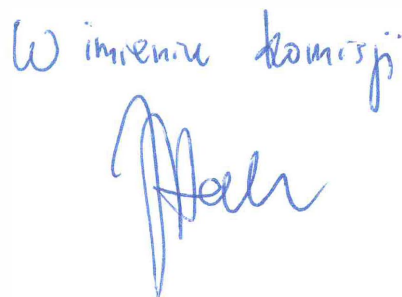 W imieniu komisji